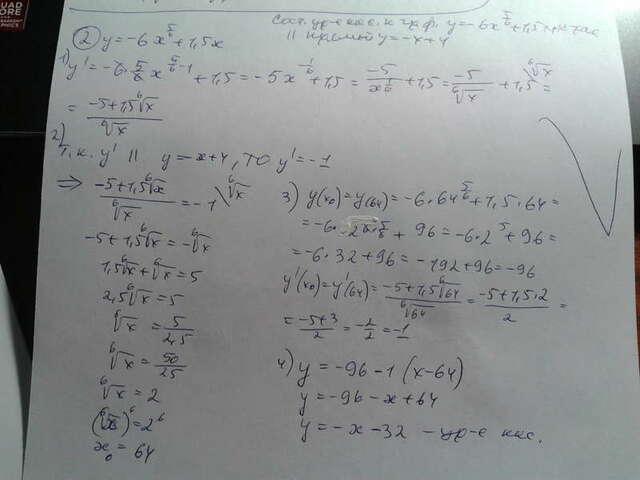 QUAD CORE
Сост. ур-е кас. к граф. y = -6x^{5/6} + 1,5x
|| прямой y = -x + 4
② y = -6x^{5/6} + 1,5x
1) y' = -6·5/6 x^{5/6 - 1} + 1,5 = -5x^{-1/6} + 1,5 = -5/x^{1/6} + 1,5 = -5/⁶√x + 1,5 \ ⁶√x =
= (-5 + 1,5⁶√x)/⁶√x
2) т.к. y' || y = -x + 4, то y' = -1
⇒ (-5 + 1,5⁶√x)/⁶√x = -1 \ ⁶√x
-5 + 1,5⁶√x = -⁶√x
1,5⁶√x + ⁶√x = 5
2,5⁶√x = 5
⁶√x = 5/2,5
⁶√x = 50/25
⁶√x = 2
(⁶√x)⁶ = 2⁶
x₀ = 64
3) y(x₀) = y(64) = -6·64^{5/6} + 1,5·64 =
= -6·2^{6·5/6} + 96 = -6·2⁵ + 96 =
= -6·32 + 96 = -192 + 96 = -96
y'(x₀) = y'(64) = (-5 + 1,5⁶√64)/⁶√64 = (-5 + 1,5·2)/2 =
= (-5 + 3)/2 = -2/2 = -1
4) y = -96 - 1(x - 64)
y = -96 - x + 64
y = -x - 32 – ур-е кас.